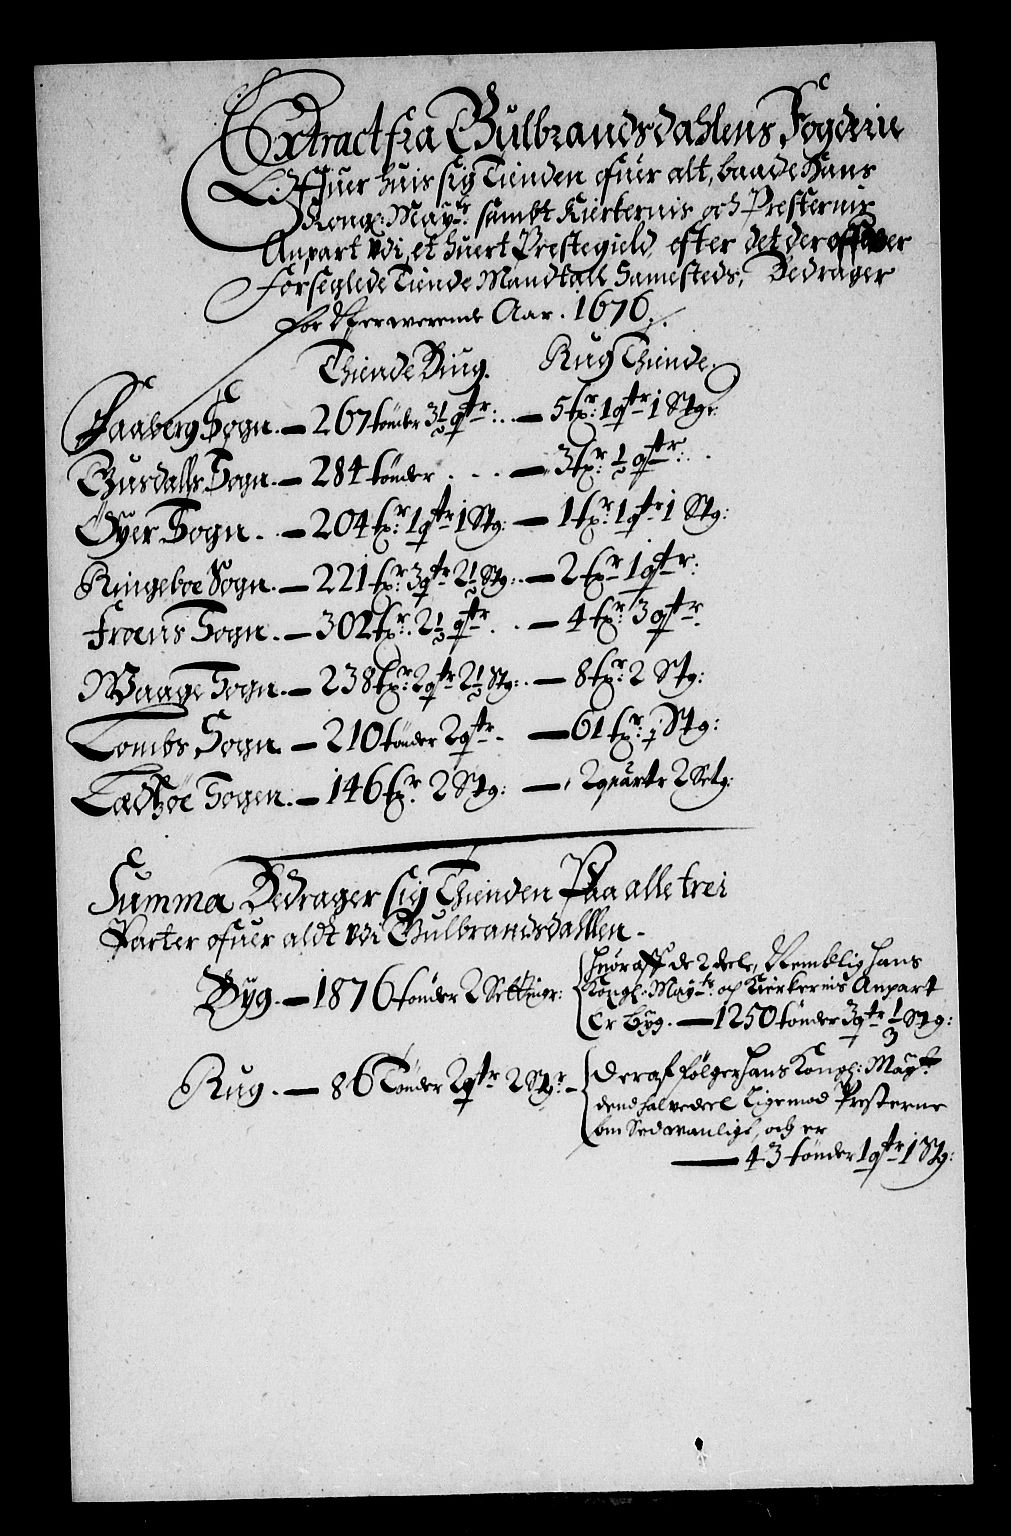 Extract fra Gulbrandsdahlens Fogderie
Offuer huis sig Tienden ofuer alt, baade Hans
Kongl: Maytz: sambt Kierkernis och Presternis
Anpart vdi et huert Prestegield, efter det der
Forseglede Tiende Mandtall Samesteds, Bedrager
for Nerwerende Aar. 1676.
Thiende Biug. Rug Thiende.
Faaberg Sogn. — 267 tønder 3½ qtr: — 5 tr: 1 qtr 1 Stgr
Gusdalls Sogn. — 284 tønder . . . — 3 tr ½ qtr:
Öyer Sogn. — 204 tr: 1 qtr 1 Stg: — 1 tr: 1 qtr 1 Stg:
Ringeboe Sogn. — 221 tr: 3 qtr 2½ Stg: — 2 tr 1 qtr:
Froens Sogn. — 302 tr. 2½ qtr . . — 4 tr: 3 qtr.
Waage Sogn. — 238 tr: 2 qtr 2½ Stg: — 8 tr: 2 Stg:
Lombs Sogn. — 210 tønder 2 qtr — 61 tr: 1 Stg:
Ledsøe Sogen. — 146 tr. 2 Stg: — 2 quartr 2 Setg:
Summa Bedrager sig Thienden Paa alle trei
Parter ofuer aldt vdi Gulbrandsdahllen.
Byg. — 1876 tønder 2 Settingr: huoraff de 2 deele, Nemblig hans
Kongl: Maytz: och Kierkernis Anpart
Er byg. — 1250 tønder 3 qtr ⅓ Stg:
Rug. — 86 Tønder 2 qtr 2 Stgr — Deraf følger hans Kongl: Maytt:
dend halvedeel Ligemod Presterne
om Sedwanligt, och er
— 43 tønder 1 qtr 1 Stg: